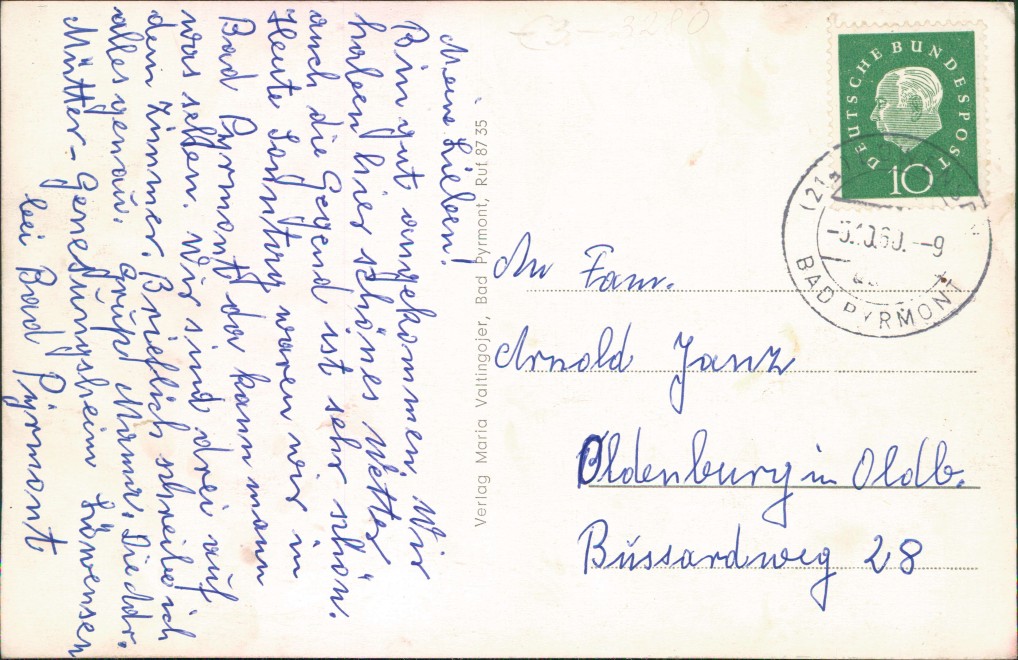 Meine Lieben!
Bin gut angekommen. Wir
haben hier schönes Wetter
auch die Gegend ist sehr schön.
Heute Sontag waren wir in
Bad Pyrmont da kann mann
was sehen. Wir sind drei auf
dem Zimmer. Brieflich schreibe ich
alles genau. Gruß Mama. Die Adr.
Mütter-Genesungsheim Löwensen
bei Bad Pirmont
Verlag Maria Valtingojer, Bad Pyrmont, Ruf 87 35
€3,- 3280
DEUTSCHE BUNDESPOST
10
(21a)
.10.60.--9
BAD PYRMONT
An Fam.
Arnold Janz
Oldenburg in Oldb.
Bussardweg 28